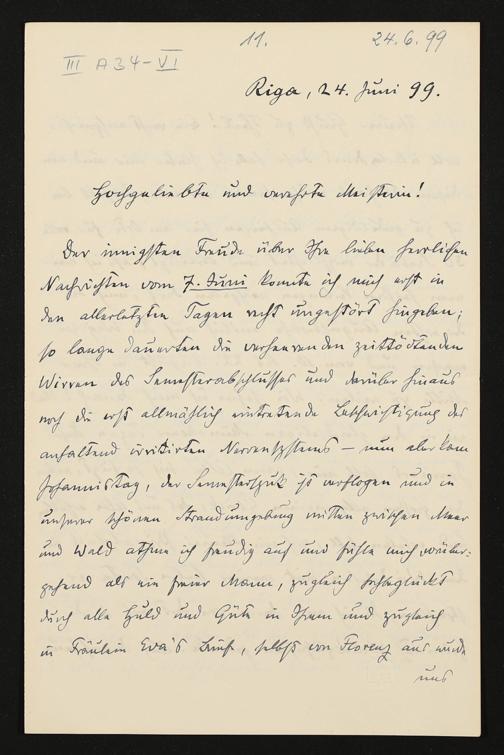 11.
24.6.99
III A34-VI
Riga, 24. Juni 99.
Hochgeliebte und verehrte Meisterin!
Der innigsten Freude über Ihre lieben herrlichen
Nachrichten vom 7. Juni konnte ich mich erst in
den allerletzten Tagen recht ungestört hingeben;
so lange dauerten die verheerenden zeittödtenden
Wirren des Semesterabschlusses und darüber hinaus
noch die erst allmählich eintretende Beschwichtigung des
anhaltend irritirten Nervensystems — nun aber kam
Johannistag, der Semesterspuk ist verflogen und in
unserer schönen Strandumgebung mitten zwischen Meer
und Wald athme ich freudig auf und fühle mich vorüber-
gehend als ein freier Mann, zugleich beglückt
durch alle Huld und Güte in Ihrem und zugleich
in Fräulein Eva's Briefe, selbst von Florenz aus wurde
uns